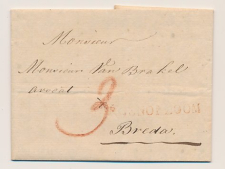 Monsieur
Monsieur Van Brakel
avocat
3
Breda